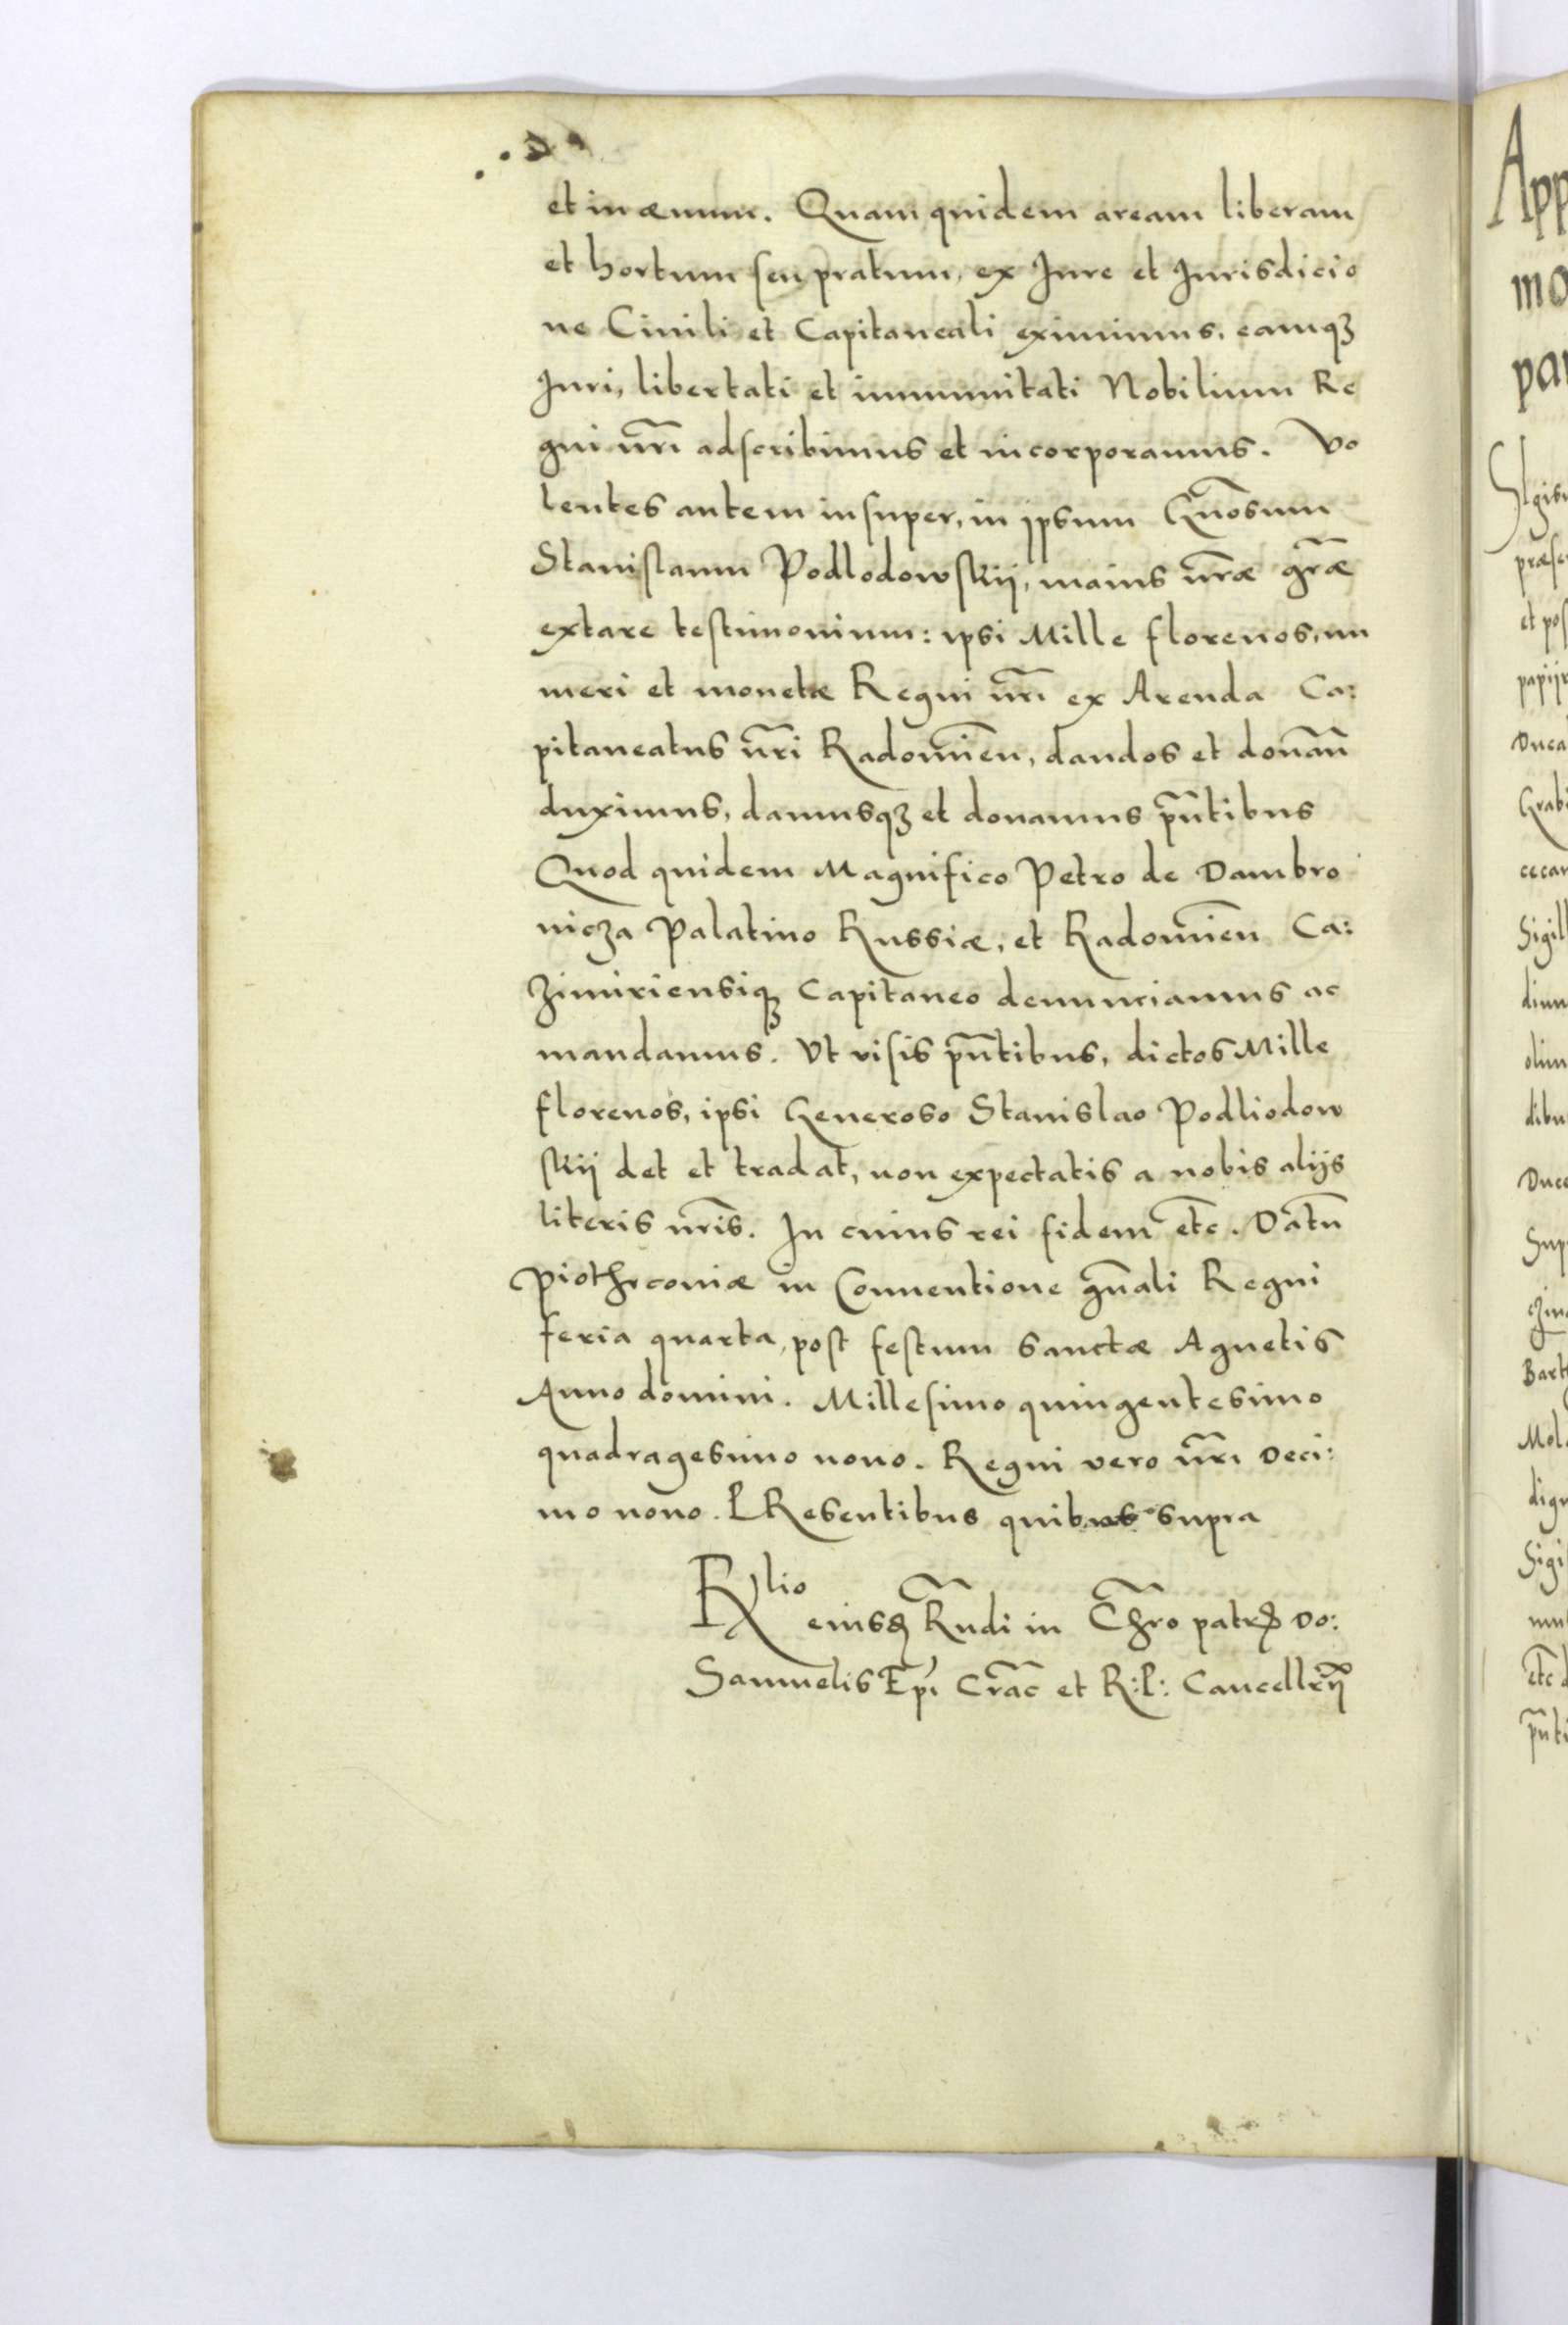 et in ævum. Quam quidem aream liberam
et hortum seu pratum, ex Jure et Jurisdicio
ne Civili et Capitaneali eximimus, eamqꝫ
Juri, libertati et immunitati Nobilium Re
gni nr̃i adscribimus et incorporamus. Vo
lentes autem insuper, in ipsum Gñosum
Stanislaum Podlodowskij, maius nr̃æ gr̃æ
extare testimonium: ipsi Mille florenos, nu
meri et monetæ Regni nr̃i ex Arenda Ca:
pitaneatus nr̃i Radomień, dandos et donañ
duximus, damusqꝫ et donamus pñtibus
Quod quidem Magnifico Petro de Dambro
nicza Palatino Russiæ, et Radomień Ca:
zimiriensiqꝫ Capitaneo denunciamus ac
mandamus. Ut visis pñtibus, dictos Mille
florenos, ipsi Generoso Stanislao Podliodow
skij det et tradat, non expectatis a nobis alijs
literis nr̃is. In cuius rei fidem etc. Datũ
Piothrcoviæ in Conventione gñali Regni
feria quarta, post festum Sanctæ Agnetis
Anno domini. Millesimo quingentesimo
quadragesimo nono. Regni vero nr̃i Deci:
mo nono. PResentibus quibus supra
Rlio
eiusdꝫ Rñdi in Chr̃o patris Do:
Samuelis Epi Crac̃ et R: P: Cancellrij
App
mo
par
Sigis
præs
et pos
papijr
Duca
Grab
cecar
Sigill
dium
olim
dibu
Duce
Sup
Bart
Mol
dign
Sigi
etc d
pñti